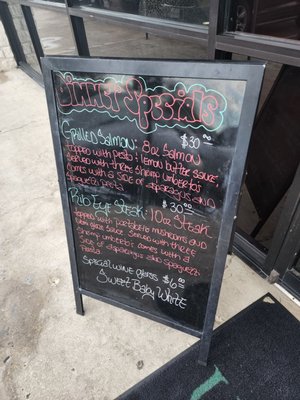 Dinner Specials
Grilled Salmon: 8oz Salmon $30.00
topped with pesto & lemon butter sauce,
served with three shrimp umberto's
comes with a side of asparagus and
spaghetti pasta
$30.00
Rib Eye Steak: 10oz Steak
topped with portabello mushrooms and
sauce served with three
shrimp umberto's comes with a
side of asparagus and spaghetti
Pasta
Special wine glass $6.00
Sweet Baby White